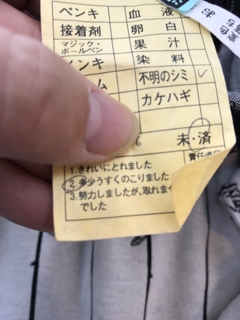 ペンキ 血液
接着剤 卵白
マジック・ボールペン 果汁
ンキ 染料
ム 不明のシミ ✓
カケハギ
未・済
責任
1.きれいにとれました
2.多少うすくのこりました
3.努力しましたが、取れませ
でした